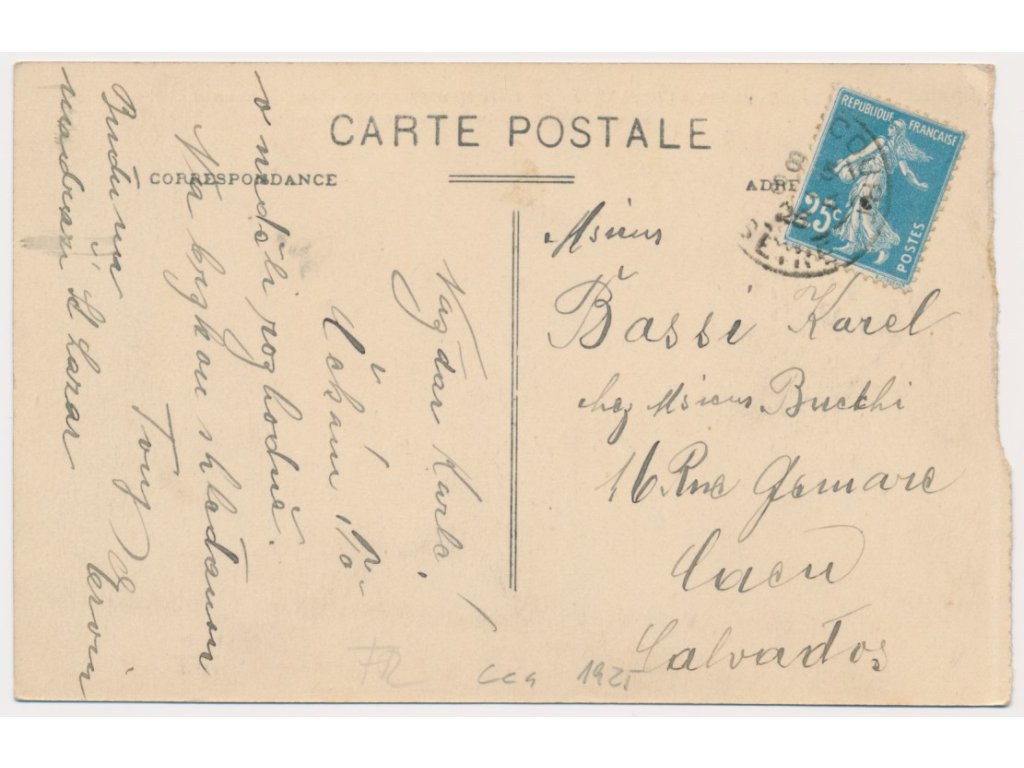 CARTE POSTALE
CORRESPONDANCE
ADRE
REPUBLIQUE FRANÇAISE
25c
POSTES
Vagdar Karle!
Učkám Tě
v neděli rozhodně.
Na brzkou shledanou
Tony
Budu na
nadrazu St Lazar
Msieur
Bassi Karel
chez Msieur Bucchi
16 Rue Gemare
Caen
Calvados
cca 1925